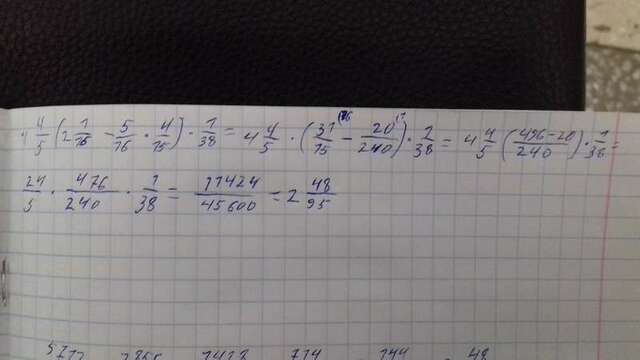 4 4/5 (2 1/15 - 5/16 · 4/15) · 1/38 = 4 4/5 · (31/15 ^16 - 20/240 ^1) · 1/38 = 4 4/5 (496-20/240) · 1/38 =
24/5 · 476/240 · 1/38 = 11424/45600 = 2 48/95